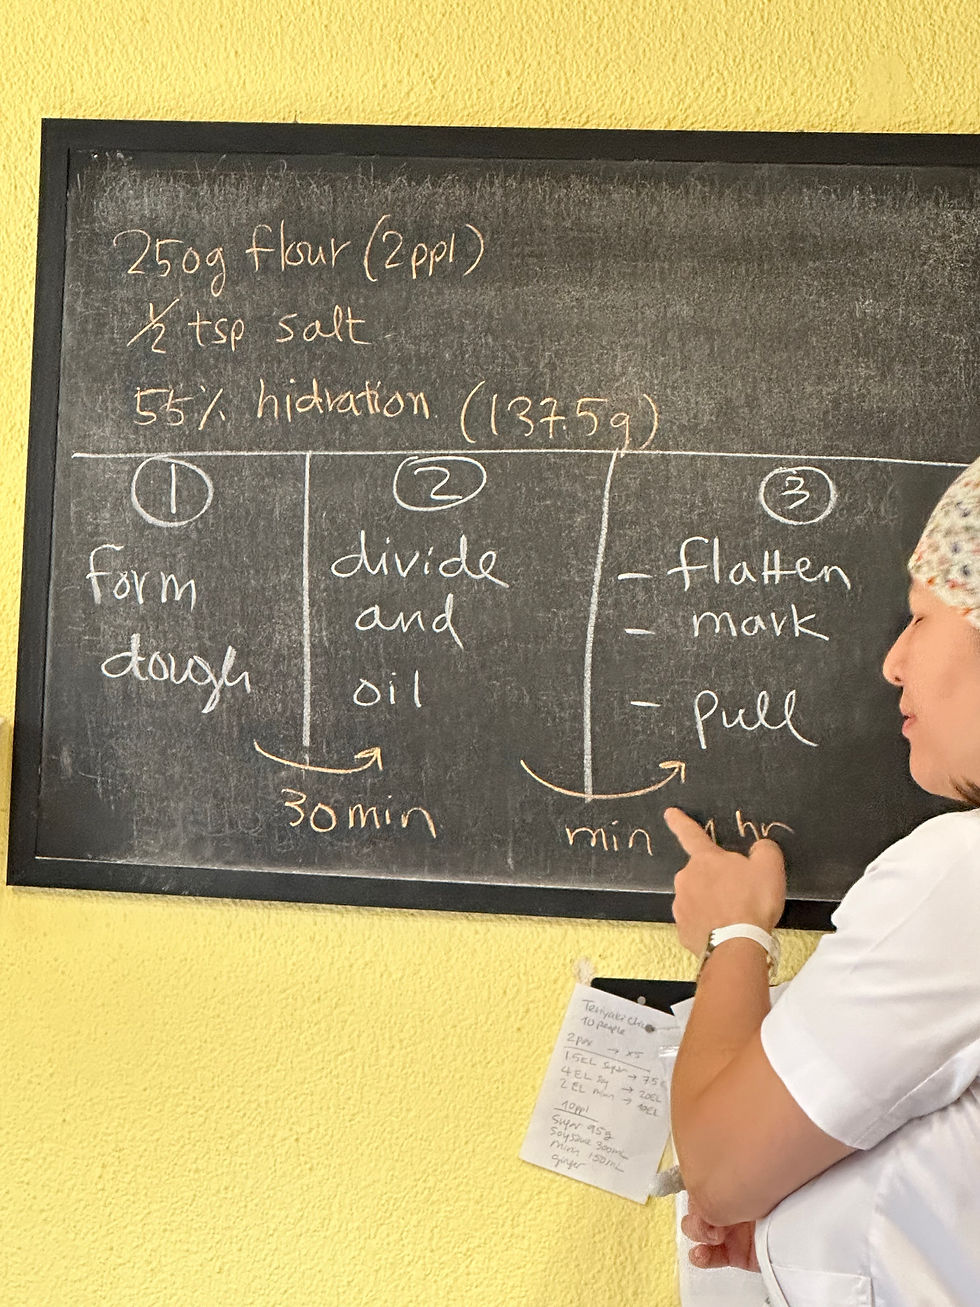 250g flour (2ppl)
½ tsp salt
55% hidration (137.5g)
1
form
dough
30min
2
divide
and
oil
min hr
3
- flatten
- mark
- pull
Teriyaki
10 people
2pax → x5
1.5EL super → 75
4EL soy → 20EL
2EL mirin → 10EL
10ppl
super 95g
soysauce 300mL
mirin 150mL
ginger